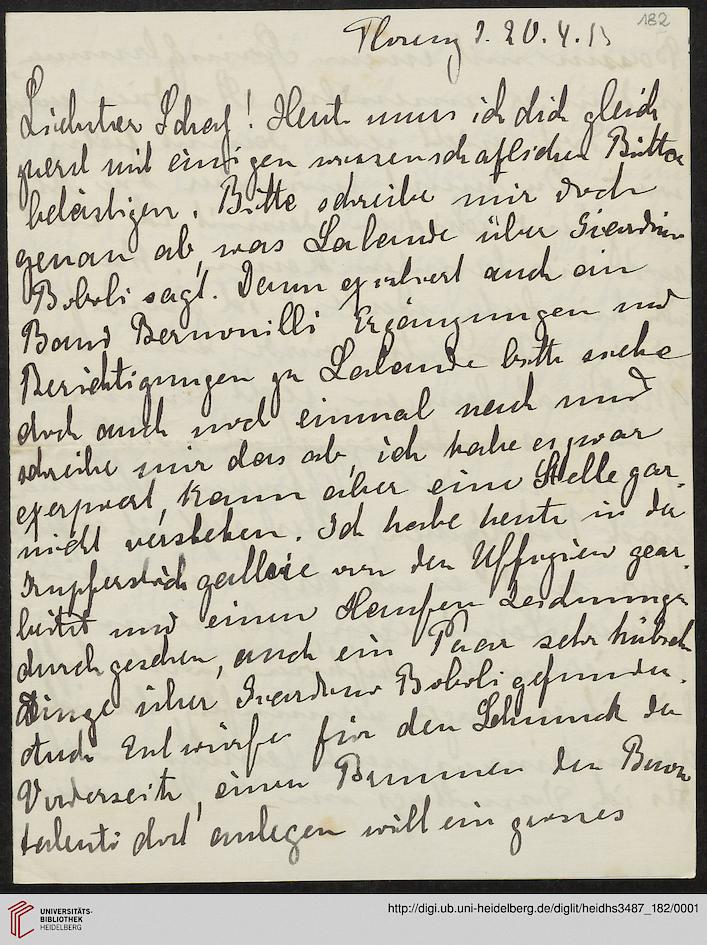 182
Florenz d. 20. 4. 13
Liebster Schatz! Heute muss ich dich gleich
zuerst mit einigen wissenschaftlichen Bitten
belästigen. Bitte schreibe mir doch
genau ab, was Lalande über Giardino
Boboli sagt. Dann existiert auch ein
Band Bernouilli Ergänzungen und
Berichtigungen zu Lalande bitte siehe
doch auch noch einmal nach und
schreibe mir das ab, ich habe es zwar
exzerpiert, kann aber eine Stelle gar
nicht verstehen. Ich habe heute in der
Kupferstichgallerie von den Uffizien gear-
beitet und einen Haufen Zeichnungen
durchgesehen, auch ein Paar sehr hübsche
Dinge über Giardino Boboli gefunden.
Auch Entwürfe für den Schmuck der
Vorderseite, einen Brunnen den Buon
talenti dort anlegen will ein grosses
UNIVERSITÄTS-
BIBLIOTHEK
HEIDELBERG
http://digi.ub.uni-heidelberg.de/diglit/heidhs3487_182/0001